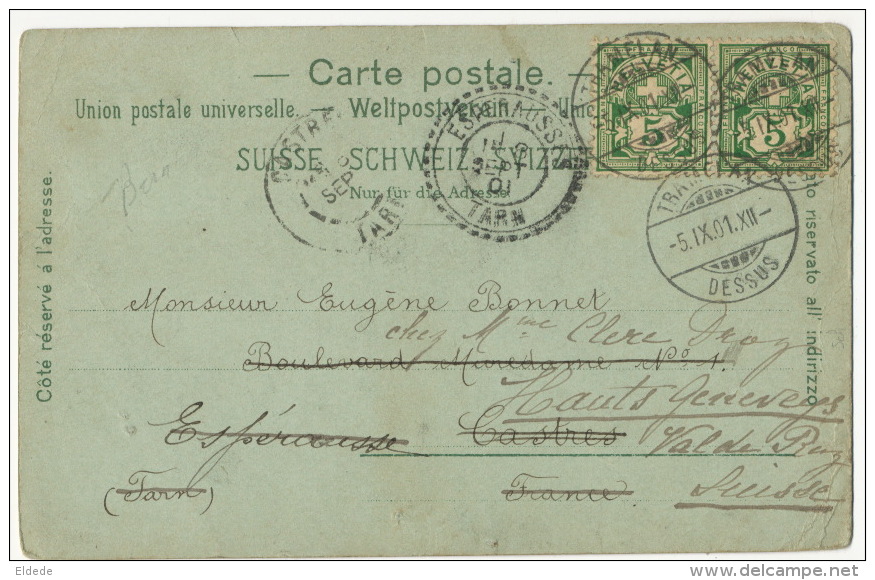 — Carte postale. —
Union postale universelle. — Weltpostverein. — Unio
SUISSE. SCHWEIZ. SVIZZ
Nur für die Adresse.
Côté réservé à l'adresse.
ato riservato all' indirizzo
HELVETIA
5
HELVETIA
5
TRAMELAN
TRAMELAN
-5.IX.01.XII-
DESSUS
CASTRES
SEPT
TARN
ESPERAUSSES
SEPT
01
TARN
Bern
Monsieur Eugène Bonnet
chez Mme Clerc Droz
Boulevard Miredame No 1.
Hauts Geneveys
Espérausse
Castres
Val de Ruz
(Tarn)
France
Suisse
delcampe.net
Eldede